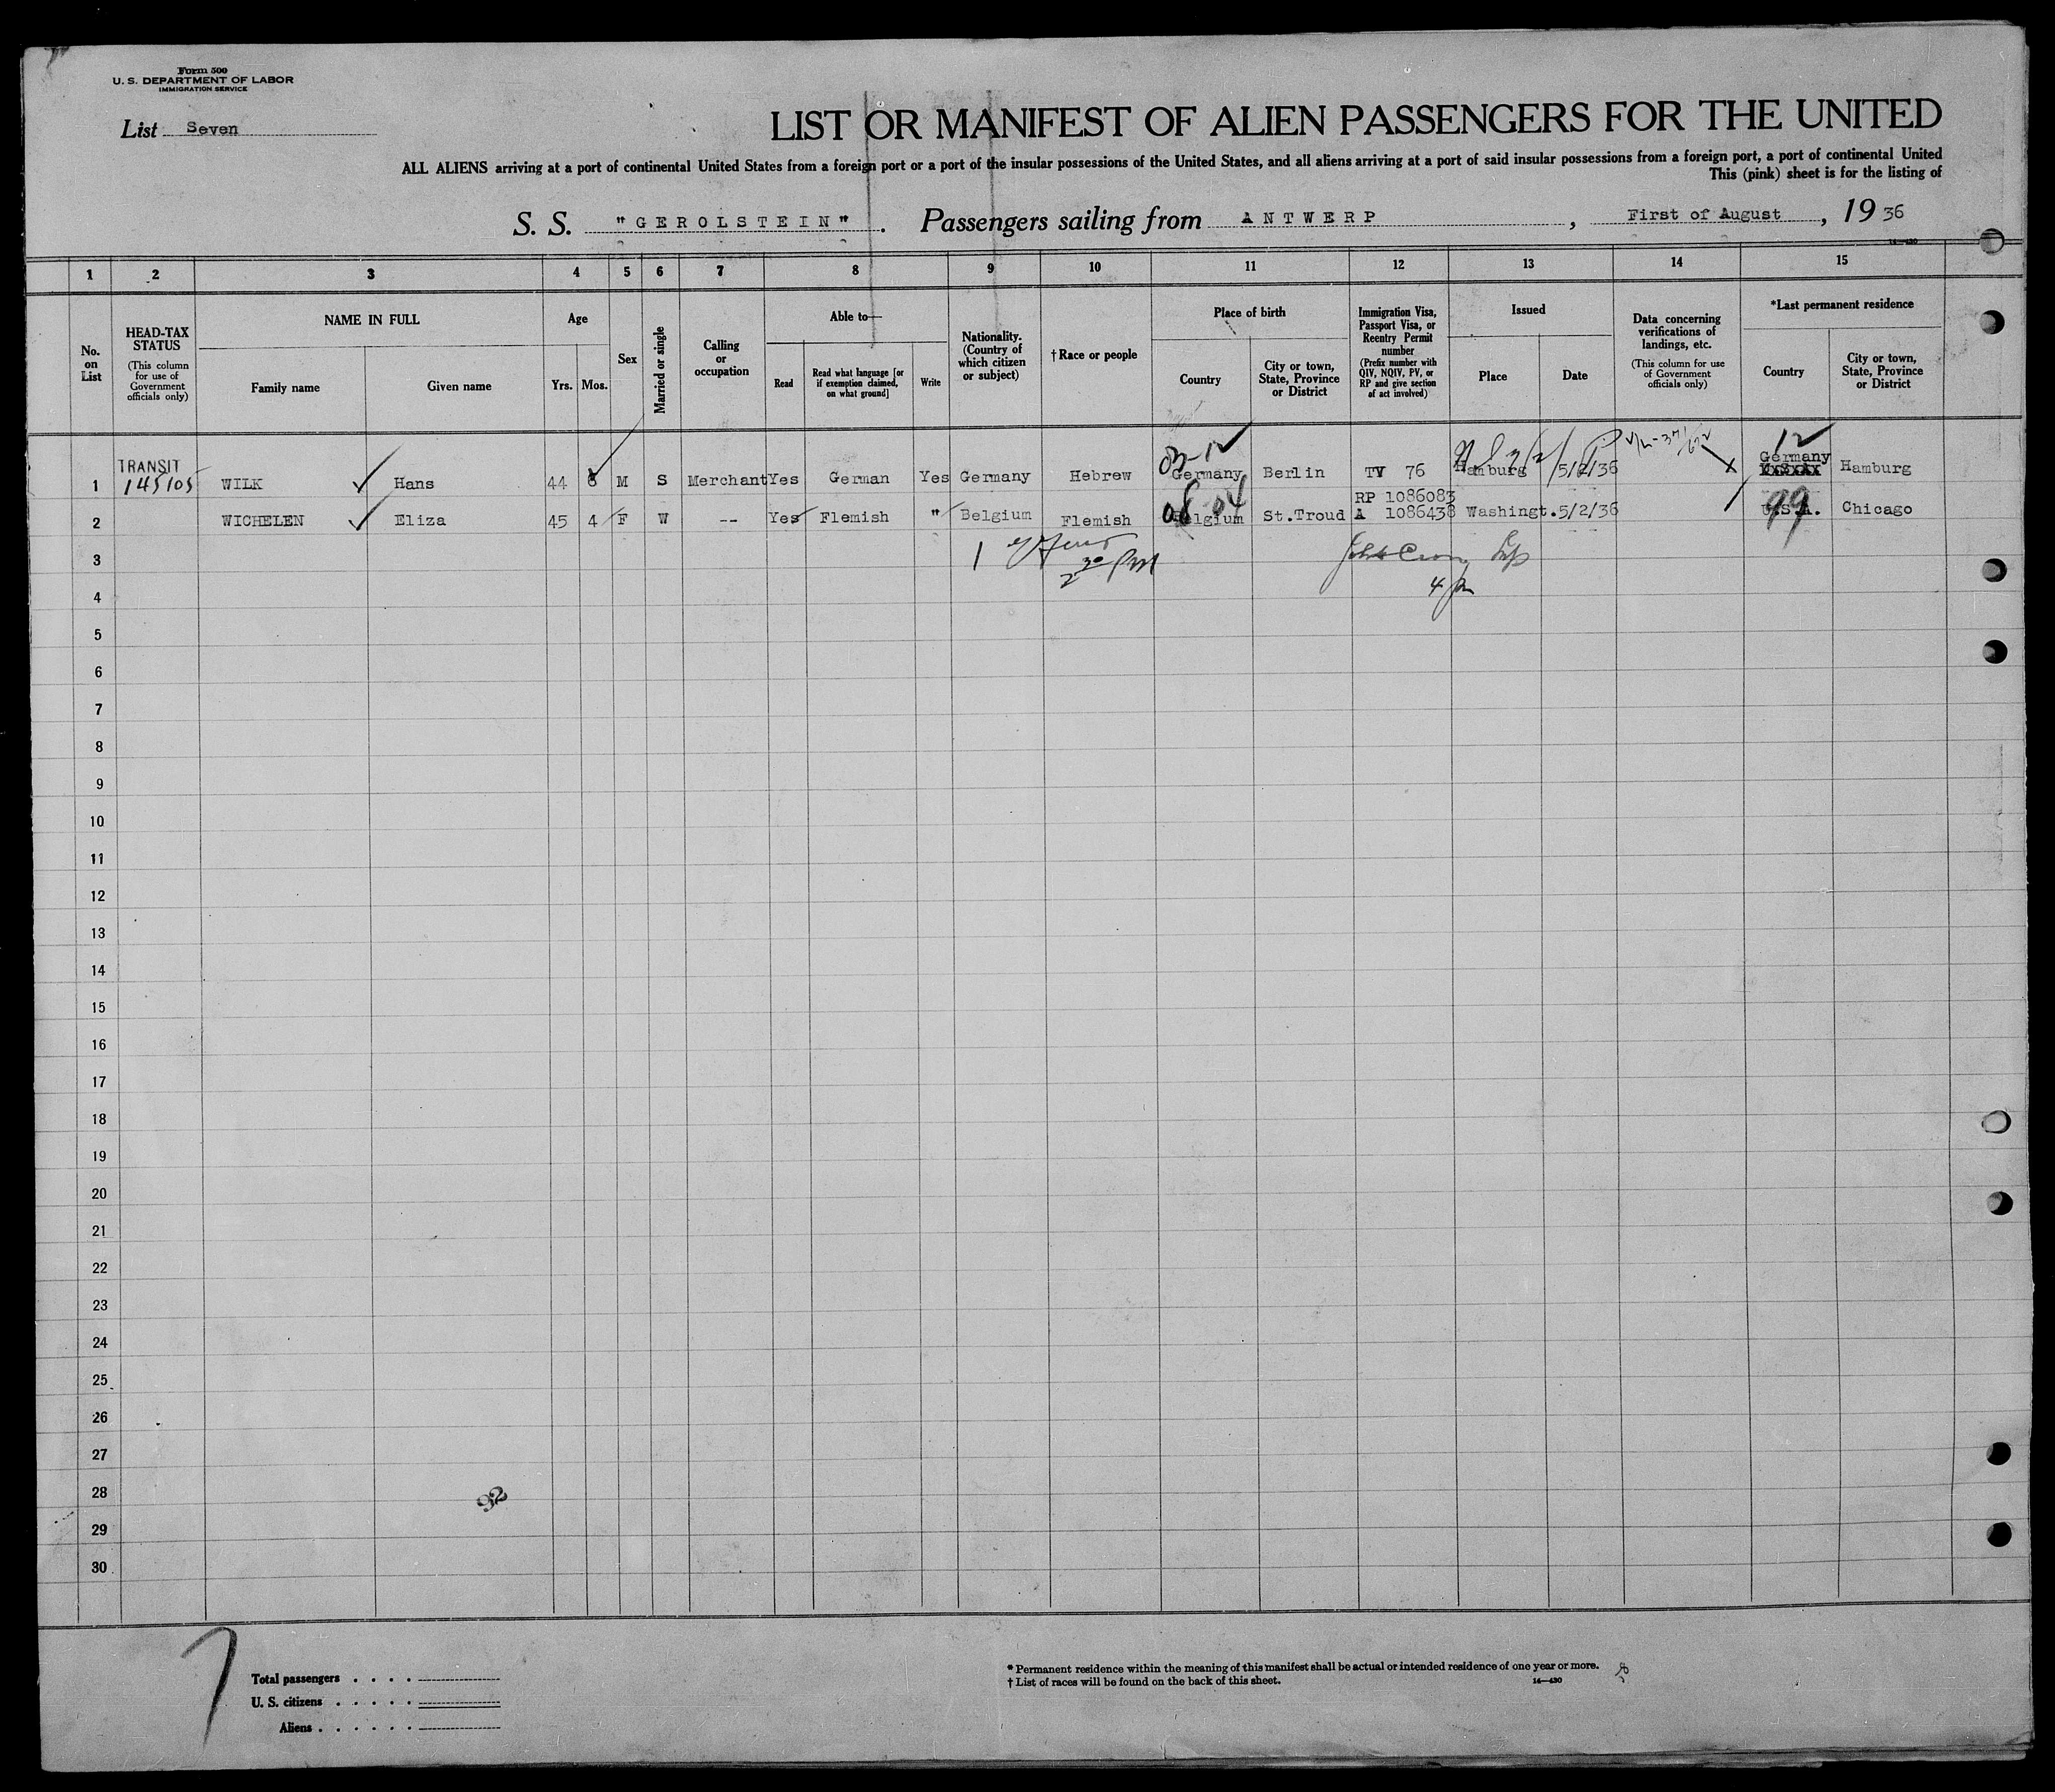 Form 500
U. S. DEPARTMENT OF LABOR
IMMIGRATION SERVICE
List Seven
LIST OR MANIFEST OF ALIEN PASSENGERS FOR THE UNITED
ALL ALIENS arriving at a port of continental United States from a foreign port or a port of the insular possessions of the United States, and all aliens arriving at a port of said insular possessions from a foreign port, a port of continental United
This (pink) sheet is for the listing of
S. S. "GEROLSTEIN". Passengers sailing from ANTWERP, First of August, 1936
14—430
1 2 3 4 5 6 7 8 9 10 11 12 13 14 15
No. on List
HEAD-TAX STATUS
(This column for use of Government officials only)
NAME IN FULL
Family name
Given name
Age
Yrs. Mos.
Sex
Married or single
Calling or occupation
Able to—
Read
Read what language [or if exemption claimed, on what ground]
Write
Nationality. (Country of which citizen or subject)
†Race or people
Place of birth
Country
City or town, State, Province or District
Immigration Visa, Passport Visa, or Reentry Permit number
(Prefix number with QIV, NQIV, PV, or RP and give section of act involved)
Issued
Place
Date
Data concerning verifications of landings, etc.
(This column for use of Government officials only)
*Last permanent residence
Country
City or town, State, Province or District
03-12 12
TRANSIT Germany
1 145105 WILK Hans 44 8 M S Merchant Yes German Yes Germany Hebrew Germany Berlin TV 76 Hamburg 5/2/36 Hamburg
RP 1086083
2 WICHELEN Eliza 45 4 F W -- Yes Flemish " Belgium Flemish Belgium St.Troud A 1086438 Washingt. 5/2/36 U.S.A. Chicago
08 04 99
3
4
5
6
7
8
9
10
11
12
13
14
15
16
17
18
19
20
21
22
23
24
25
26
27
28
29
30
92
7
Total passengers
U. S. citizens
Aliens
* Permanent residence within the meaning of this manifest shall be actual or intended residence of one year or more.
† List of races will be found on the back of this sheet.
14—430